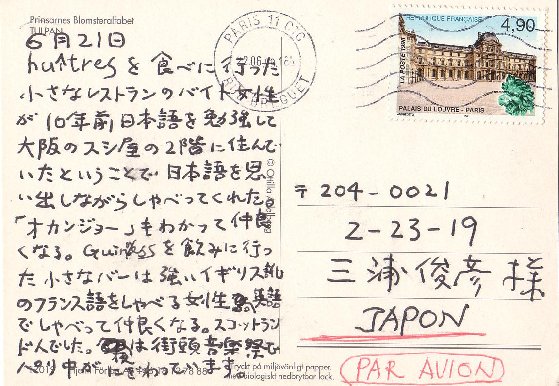 Prinsarnes Blomsteralfabet
TULPAN
6月21日
huîtresを食べに行った
小さなレストランのバイト女性
が10年前日本語を勉強して
大阪のスシ屋の2階に住んで
いたということで日本語を思
い出しながらしゃべってくれた。
「オカンジョー」もわかって仲良
くなる。Guinnessを飲みに行っ
た小さなバーは強いイギリス訛
のフランス語をしゃべる女性 英語
でしゃべって仲良くなる。スコットラン
ド人でした。夜は街頭音楽祭で
パリ中が わいてます。
PARIS 11 C.T.C
REPUBLIQUE FRANÇAISE
4,90
LA POSTE 1998
PALAIS DU LOUVRE - PARIS
〒204-0021
2-23-19
三浦俊彦様
JAPON
PAR AVION
Tryckt på miljövänligt papper,
med biologiskt nedbrytbar lack.